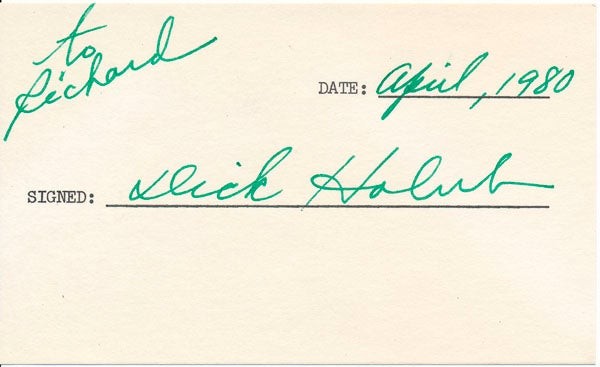 to
Richard
DATE: April, 1980
SIGNED: Dick Holub